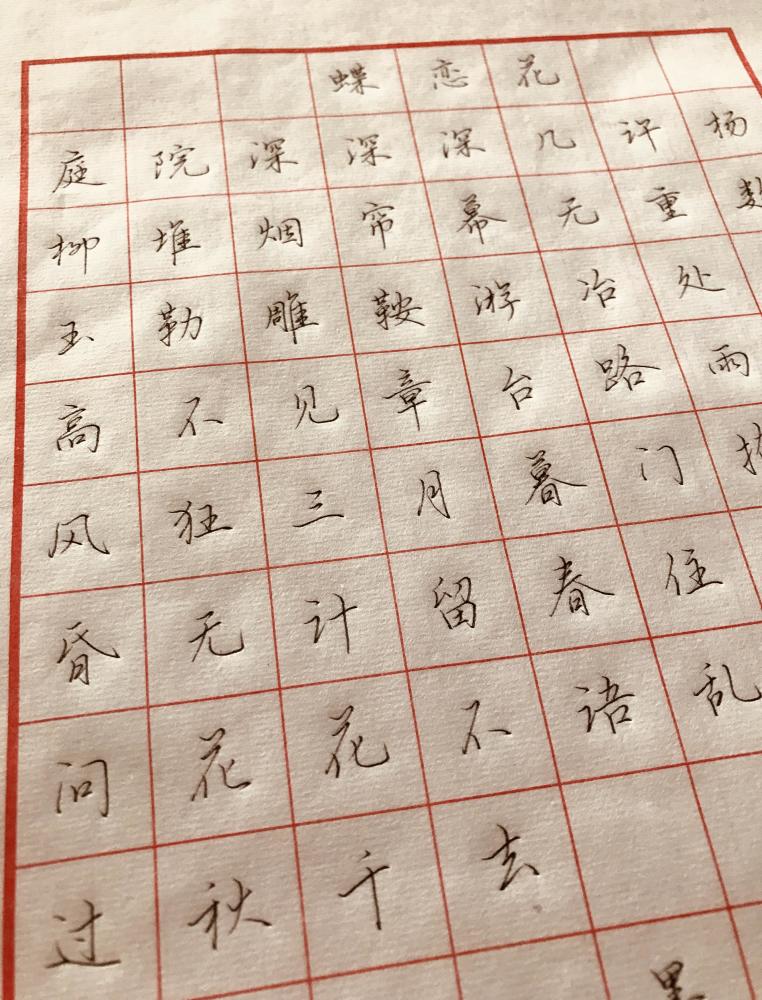 蝶恋花
庭院深深深几许杨
柳堆烟帘幕无重数
玉勒雕鞍游冶处
高不见章台路雨
风狂三月暮门掩
昏无计留春住
问花花不语乱
过秋千去
墨